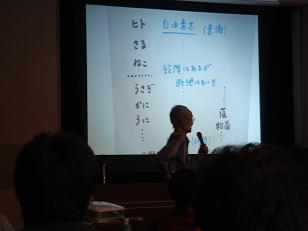 ヒト 自由意志 (意識)
さる
ねこ 段階はあるが
断絶はない!!
うさぎ
かに
うに